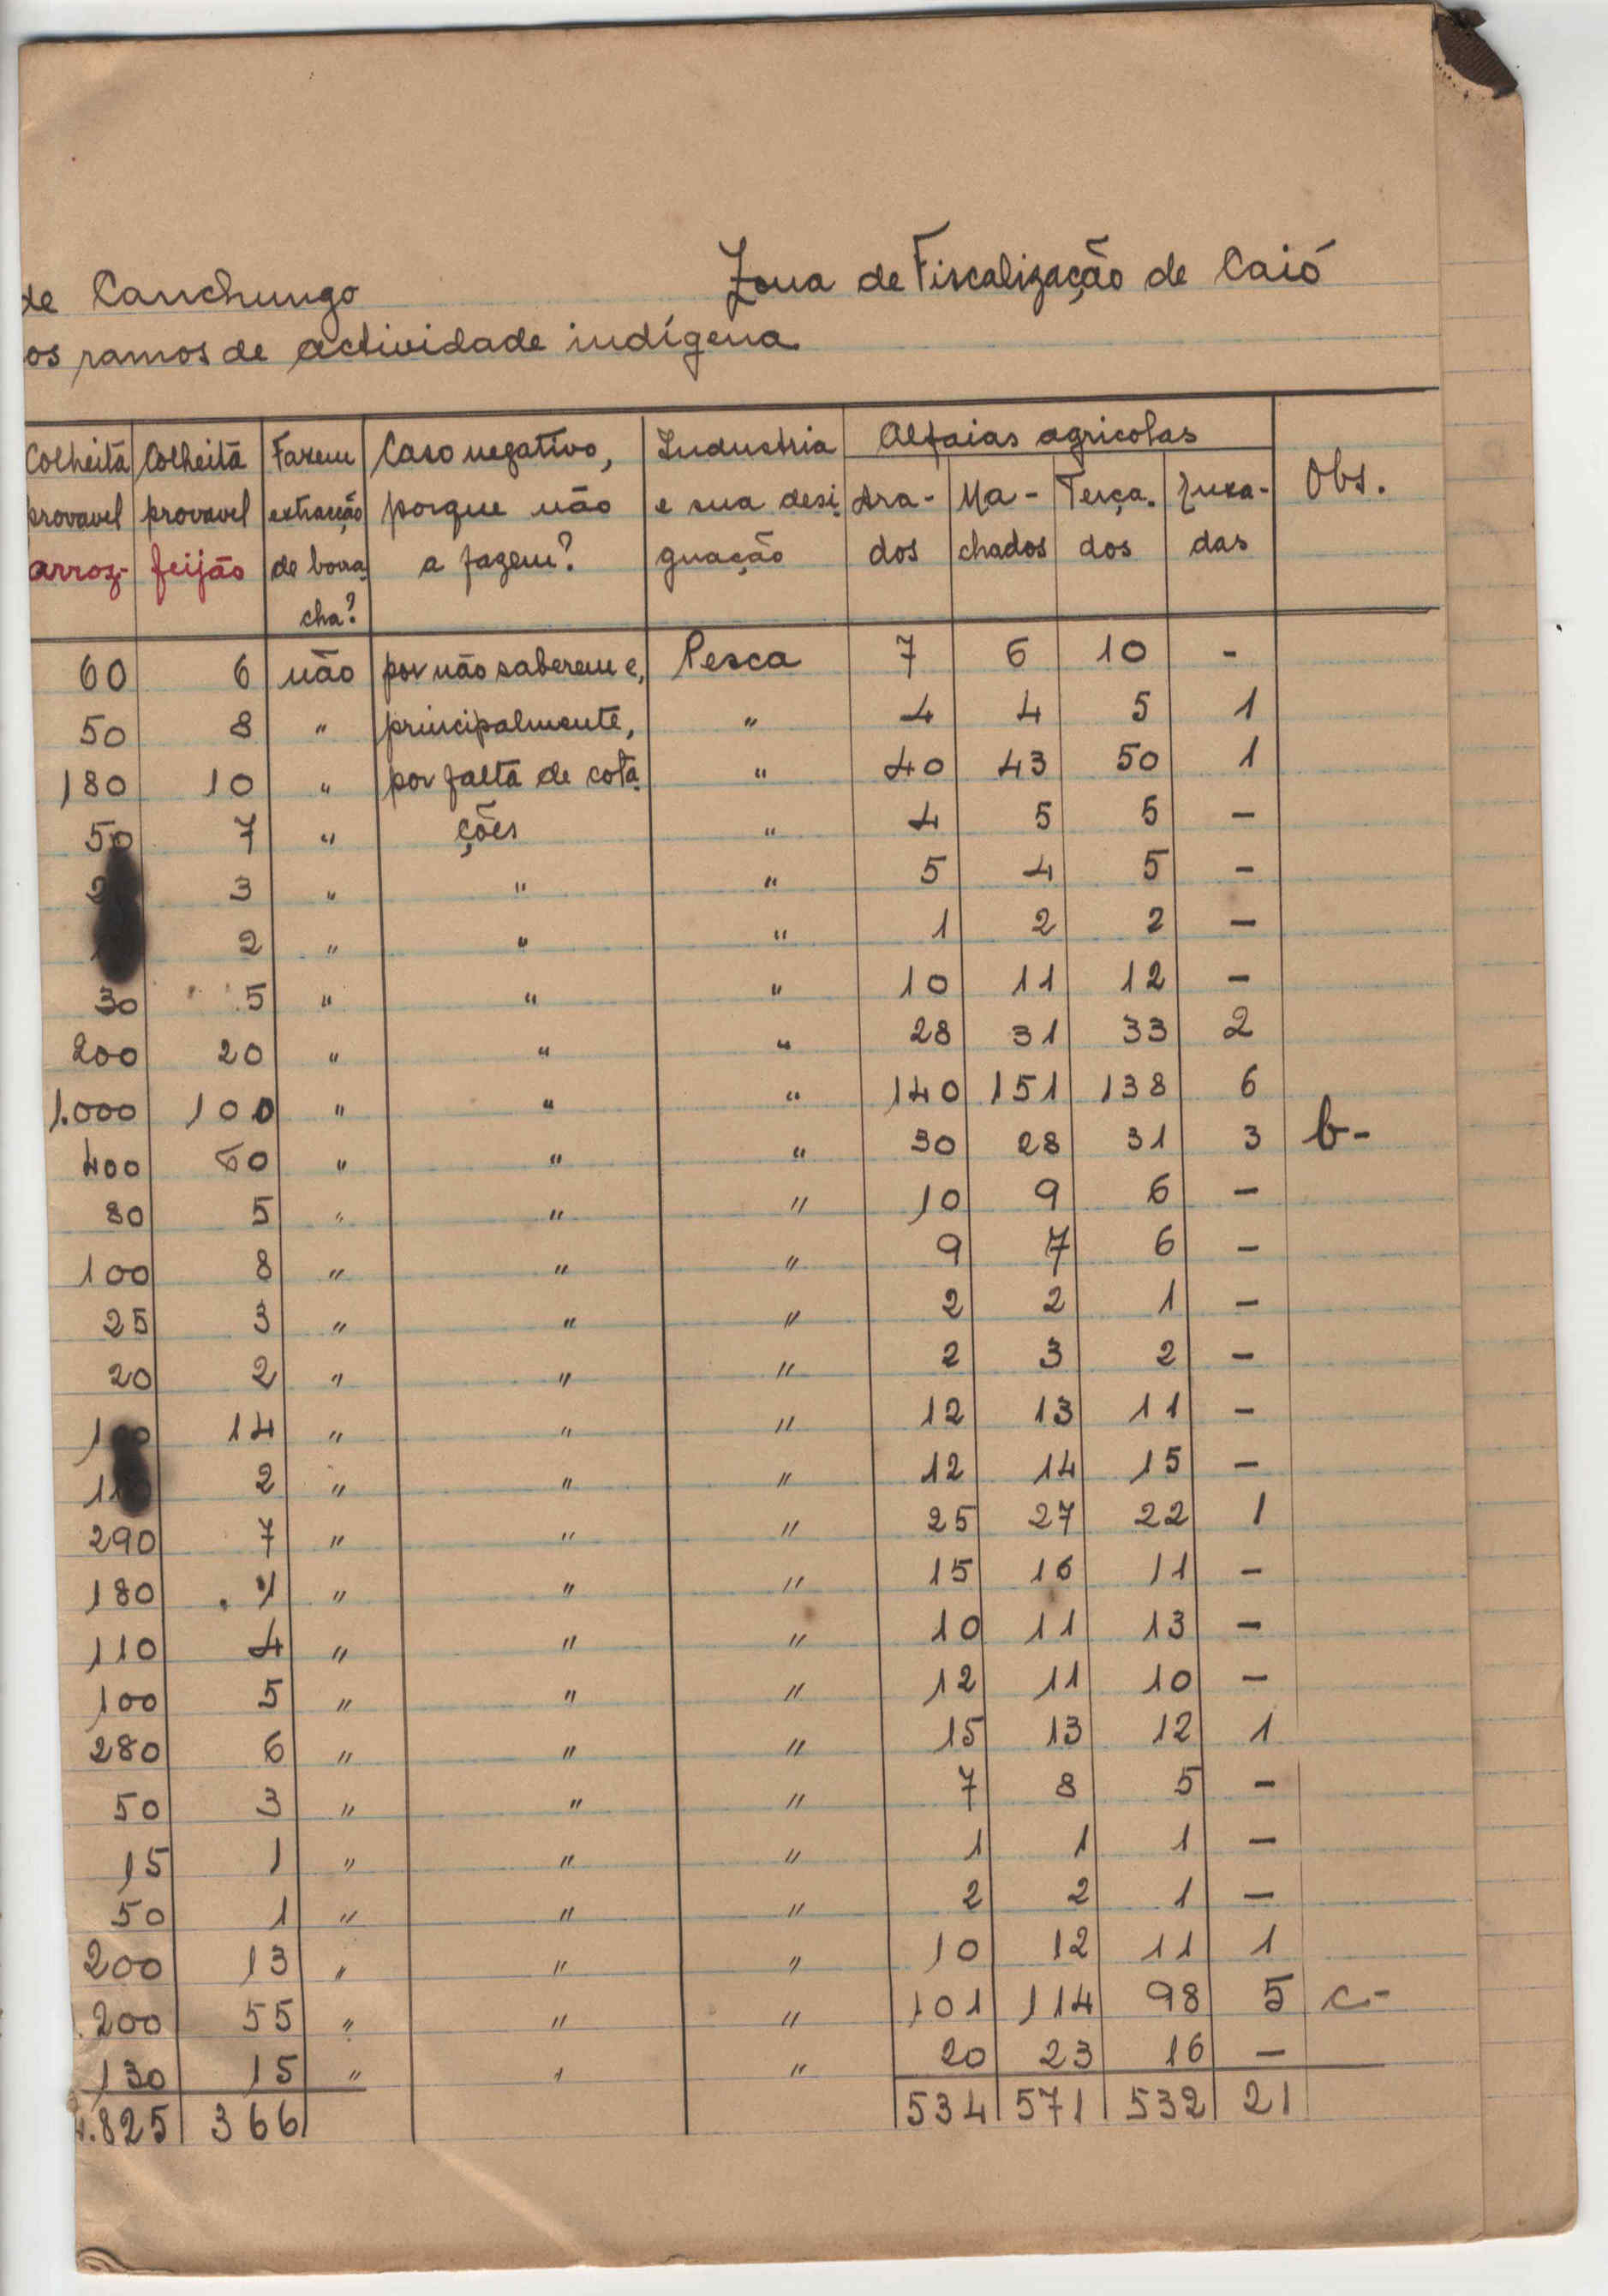 de Canchungo Zona de Fiscalização de Caió
os ramos de actividade indígena
Colheita Colheita Fazem Caso negativo, Industria Alfaias agricolas
provavel provavel extracção porque não e sua desi- Ara- Ma- Terça- Enxa- Obs.
arroz- feijão de borra a fazem? gnação dos chados dos das
cha?
60 6 não por não saberem e, Pesca 7 6 10 -
50 8 " principalmente, " 4 4 5 1
180 10 " por falta de cota- " 40 43 50 1
50 7 " ções " 4 5 5 -
3 " " " 5 4 5 -
2 " " " 1 2 2 -
30 5 " " " 10 11 12 -
200 20 " " " 28 31 33 2
1.000 100 " " " 140 151 138 6
400 60 " " " 30 28 31 3 b-
80 5 " " " 10 9 6 -
100 8 " " " 9 7 6 -
25 3 " " " 2 2 1 -
20 2 " " " 2 3 2 -
14 " " " 12 13 11 -
2 " " " 12 14 15 -
290 7 " " " 25 27 22 1
180 1 " " " 15 16 11 -
110 4 " " " 10 11 13 -
100 5 " " " 12 11 10 -
280 6 " " " 15 13 12 1
50 3 " " " 7 8 5 -
15 1 " " " 1 1 1 -
50 1 " " " 2 2 1 -
200 13 " " " 10 12 11 1
.200 55 " " " 101 114 98 5 c-
130 15 " " " 20 23 16 -
.825 366 534 571 532 21